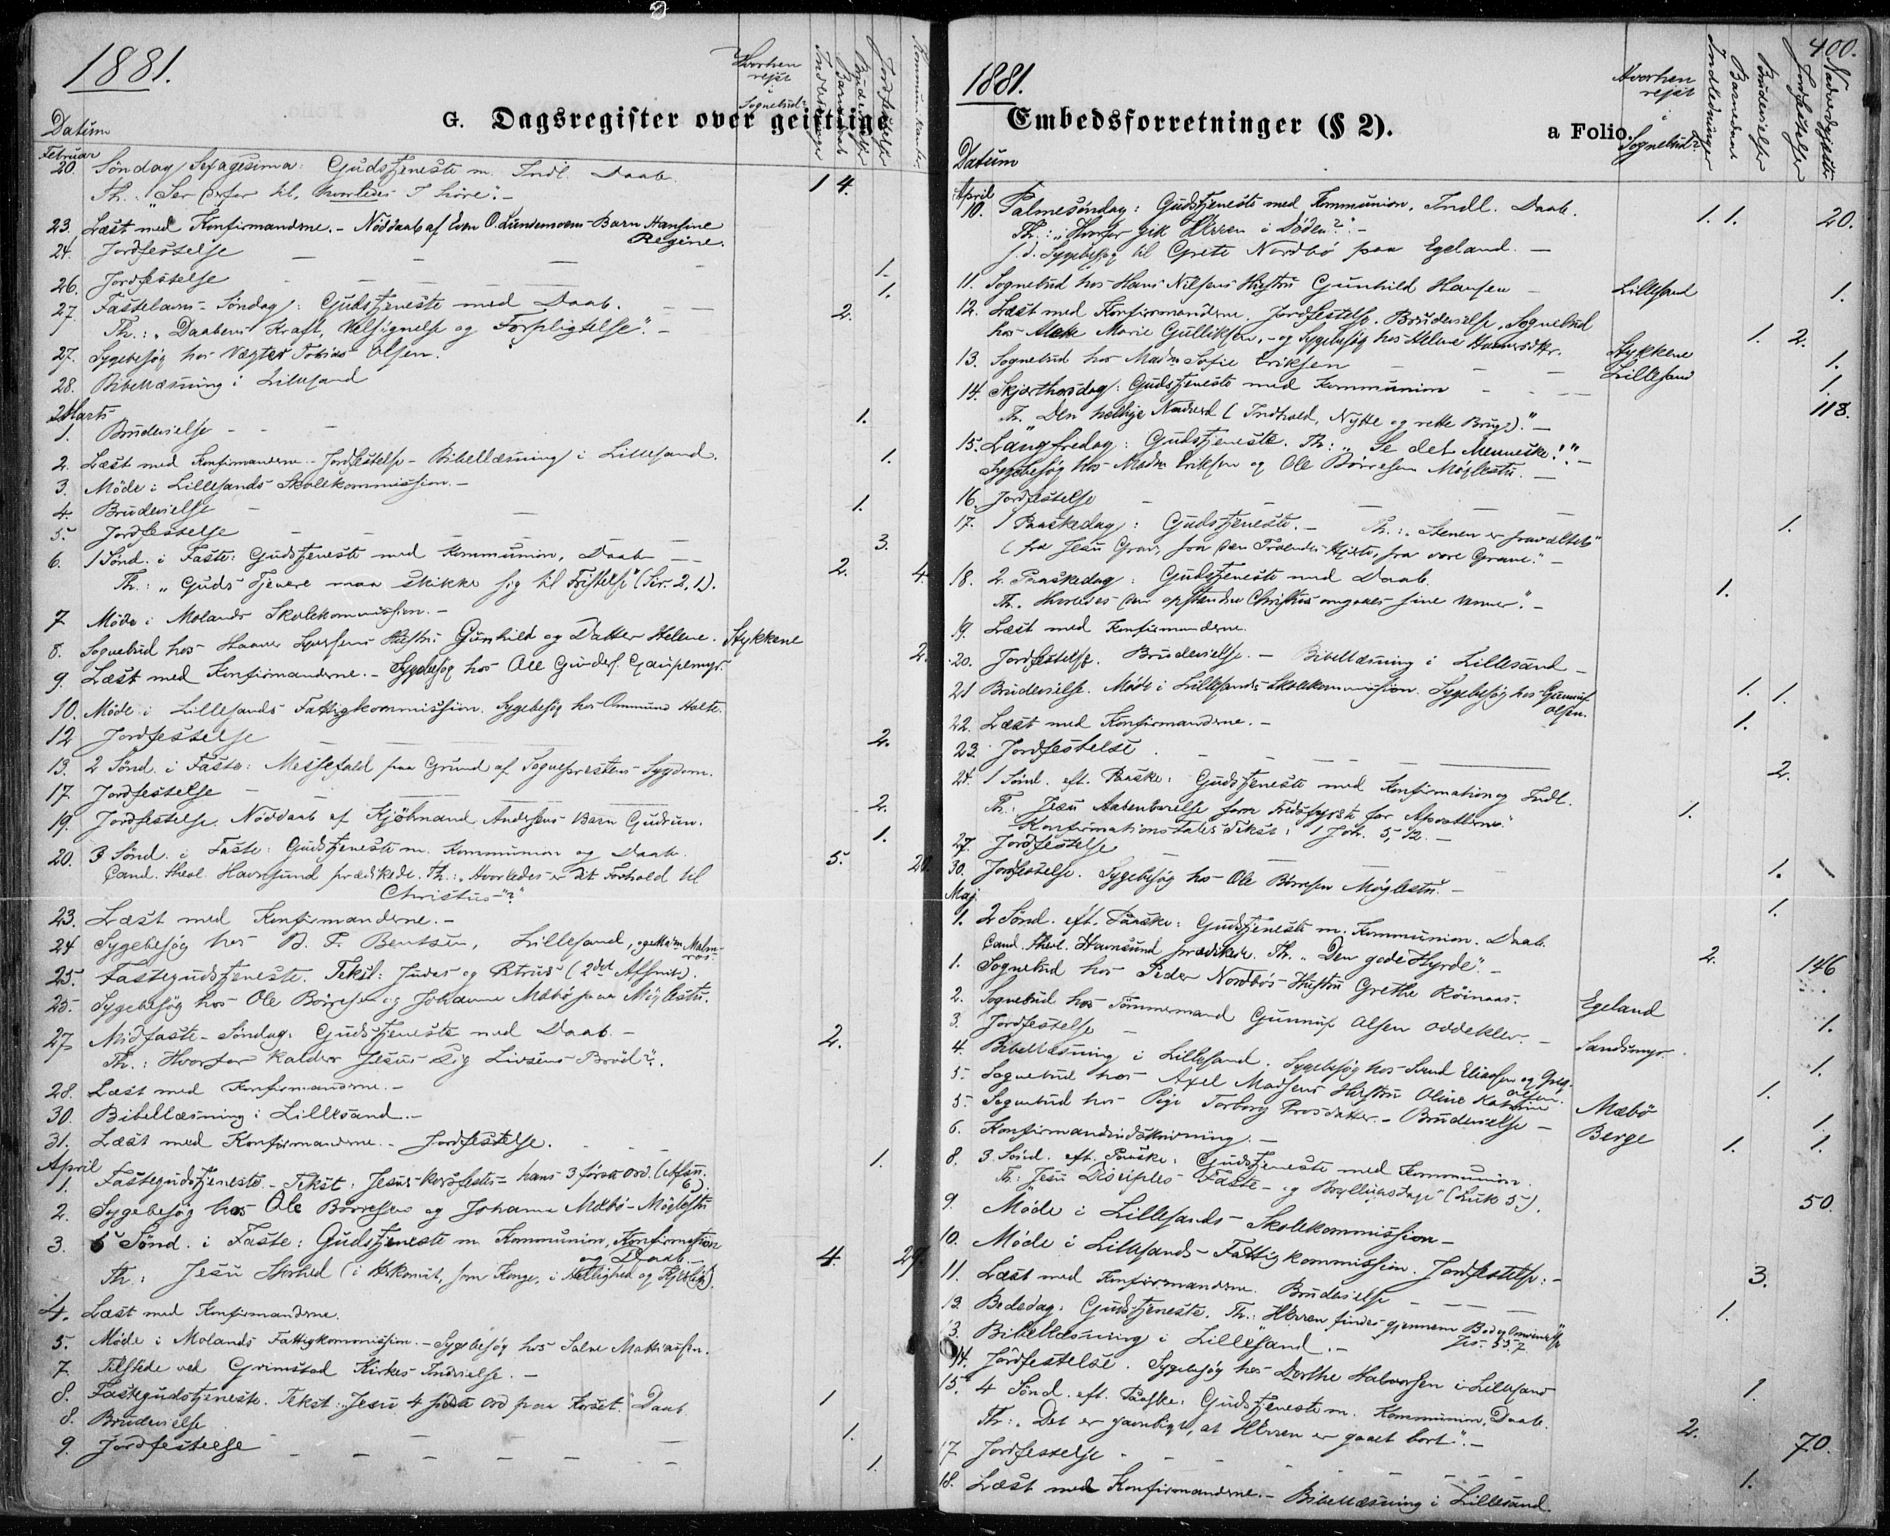 1881.
Hvorhen
rejst
i
Sognebud?
Indledninger
Barnedaab
Brudevielser
Jordfestelser
Kommunikanter
G. Dagsregister over geistlige
Datum
Februar
20. Søndag Sexagesima: Gudstjeneste m. Indl. Daab. 1 4.
Th.: "Ser derfor til, hvorledes I høre". -
23. Læst med Konfirmanderne. - Nöddaab af Even O. Lundemoens Barn Hansine
Regine.
24. Jordfestelse - 1.
26. Jordfestelse - 1.
27. Fastelavns-Søndag: Gudstjeneste med Daab. 2.
Th.: "Daabens Kraft, Velsignelse og Forpligtelse". -
27. Sygebesøg hos Vægter Tobias Olsen.
28. Bibellæsning i Lillesand
Marts
1. Brudevielse - 1.
2. Læst med Konfirmanderne - Jordfestelse - Bibellæsning i Lillesand. 1.
3. Møde i Lillesands Skolekommission. -
4. Brudevielse - 1.
5. Jordfestelse - 3.
6. 1 Sønd. i Faste: Gudstjeneste med Kommunion, Daab 2. 4.
Th.: "Guds Tjenere maa skikke sig til Fristelse" (Sir. 2, 1).
7. Møde i Molands Skolekommission. -
8. Sognebud hos Hustru Gunhild og Datter Helene. Stykkene 2.
9. Læst med Konfirmanderne. - Sygebesøg hos Ole Gundes. Gaupemyr.
10. Møde i Lillesands Fattigkommission. Sygebesøg hos Ommund Holte.
12 Jordfestelse 2.
13. 2 Sønd. i Faste: Messefald paa Grund af Sognepræstens Sygdom.
17. Jordfestelse - 2.
19. Jordfestelse. Nöddaab af Kjøbmand Andersens Barn Gudrun. 1.
20. 3 Sønd. i Faste: Gudstjeneste m. Kommunion og Daab. 5. 20.
Cand. theol. Havnsund prædikede. Th.: "Hvorledes er dit Forhold til
Christus"?
23. Læst med Konfirmanderne. -
24 Sygebesøg hos B. F. Bentsen, Lillesand, og Mdm. Malm-
25. Fastegudstjeneste. Tekst: Judas og Petrus (2det Afsnit).
25. Sygebesøg hos Ole Börresen og Johanne Mæbø paa Møglestu.
27 Midfaste-Søndag: Gudstjeneste med Daab - 2.
Th.: Hvorfor kalder Jesus sig Livsens Brød?.
28. Læst med Konfirmanderne. -
30. Bibellæsning i Lillesand. -
31. Læst med Konfirmanderne. - Jordfestelse. 1.
April
1. Fastegudstjeneste. - Tekst: Jesus korsfestes - hans 3 første Ord (Afsn.
6).
2. Sygebesøg hos Ole Börresen og Johanne Mæbø - Møglestu
3. 5 Sønd. i Faste: Gudstjeneste m. Kommunion, Konfirmation
og Daab 4. 29.
Th.: Jesu Storhed (i Herkomst, som Konge, i Hellighed og Kjærlighed).
4. Læst med Konfirmanderne.
5. Møde i Molands Fattigkommission. - Sygebesøg hos Salve Mathiassen.
7. Tilstede ved Grimstad Kirkes Indvielse. -
8. Fastegudstjeneste. Tekst: Jesu 4 sidste Ord paa Korset. Daab 1
8. Brudevielse 1.
9. Jordfestelse - 1.
1881.
400.
Hvorhen
rejst
i
Sognebud?
Indledninger
Barnedaab
Brudevielser
Jordfestelser
Nadverdgjester
Embedsforretninger (§ 2).
a Folio.
Datum
April
10. Palmesøndag: Gudstjeneste med Kommunion. Indl. Daab. 1. 1. 20.
Th.: "Hvorfor gik Herren i Døden?". -
s. D. Sygebesøg til Grete Nordbø paa Egeland. -
11. Sognebud hos Hans Nilsens Hustru Gunhild Hansen - Lillesand 1.
12. Læst med Konfirmanderne. Jordfestelse. Brudevielse. Sognebud 1. 2.
hos Marie Gulliksen, - og Sygebesøg hos Helene Stykkene 1.
13. Sognebud hos Madm Sofie Eriksen Lillesand 1.
14. Skjærthorsdag: Gudstjeneste med Kommunion 118.
Th. "Den hellige Nadverd (Indhold, Nytte og rette Brug)". -
15. Langfredag: Gudstjeneste. Th.: "Se det Menneske!" -
Sygebesøg hos Madm Eriksen og Ole Börresen Møglestu. -
16. Jordfestelse - 1.
17. 1 Paaskedag: Gudstjeneste. - Th.: "Stenen er fravæltet"
(fra Jesu Grav, fra den Troendes Hjerte, fra vore Grave." -
18. 2 Paaskedag: Gudstjeneste med Daab. 1.
Th. "Hvorledes den opstandne Christus omgaaes sine Venner". -
19. Læst med Konfirmanderne.
20. Jordfestelse. Brudevielse. - Bibellæsning i Lillesand - 1. 1.
21 Brudevielse. Møde i Lillesands Skolekommission. Sygebesøg hos Gunnuf
Olsen. 1.
22. Læst med Konfirmanderne. -
23. Jordfestelse. - 2.
24. 1 Sønd. eft. Paaske: Gudstjeneste med Konfirmation og Indl. 1.
Th.: Jesu Aabenbarelse som Fredsfyrste for Apostlerne."
Konfirmationstales Tekst: 1 Joh. 5, 12. -
27. Jordfestelse 1.
30. Jordfestelse. Sygebesøg hos Ole Börresen Møglestu. - 1.
Maj
1. 2 Sønd. eft. Paaske: Gudstjeneste m. Kommunion. Daab. 2. 146
Cand. theol. Havnsund prædikede. Th. "Den gode Hyrde". -
1. Sognebud hos Peder Nordbøs Hustru Grethe Röinaas. Egeland 1.
2. Sognebud hos Tömmermand Gunnuf Olsen Oddekler. - Sandsmyr. 1.
3. Jordfestelse - 1.
4. Bibellæsning i Lillesand. Sygebesøg hos Eliasen og Greg.
Olsen.
5. Sognebud hos Axel Madsens Hustru Oline Katrine Mæbö 1.
5. Sognebud hos Pige Torborg Brudevielse - Berge 1. 1.
6. Konfirmandindskrivning. -
8. 3 Sønd. eft. Paaske: Gudstjeneste med Kommunion. 50.
Th.: "Jesu Disciples Faste- og Bryllupsdage" (Luk 5).
9. Møde i Lillesands Skolekommission -
10. Møde i Lillesands Fattigkommission. Jordfestelse: - 3.
11. Læst med Konfirmanderne. Brudevielse 1.
13. Bededag: Gudstjeneste. Th.: Herren findes gjennem Bod og Omvendelse
Jes. 55, 7
13. Bibellæsning i Lillesand. -
14. Jordfestelse. Sygebesøg hos Dorthe Halvorsen i Lillesand 1.
15. 4 Sønd. eft. Paaske: Gudstjeneste m. Kommunion, Daab. 2. 70.
Th.: "Det er gavnligt, at Herren er gaaet bort". -
17. Jordfestelse - 1.
18. Læst med Konfirmanderne. - Bibellæsning i Lillesand.